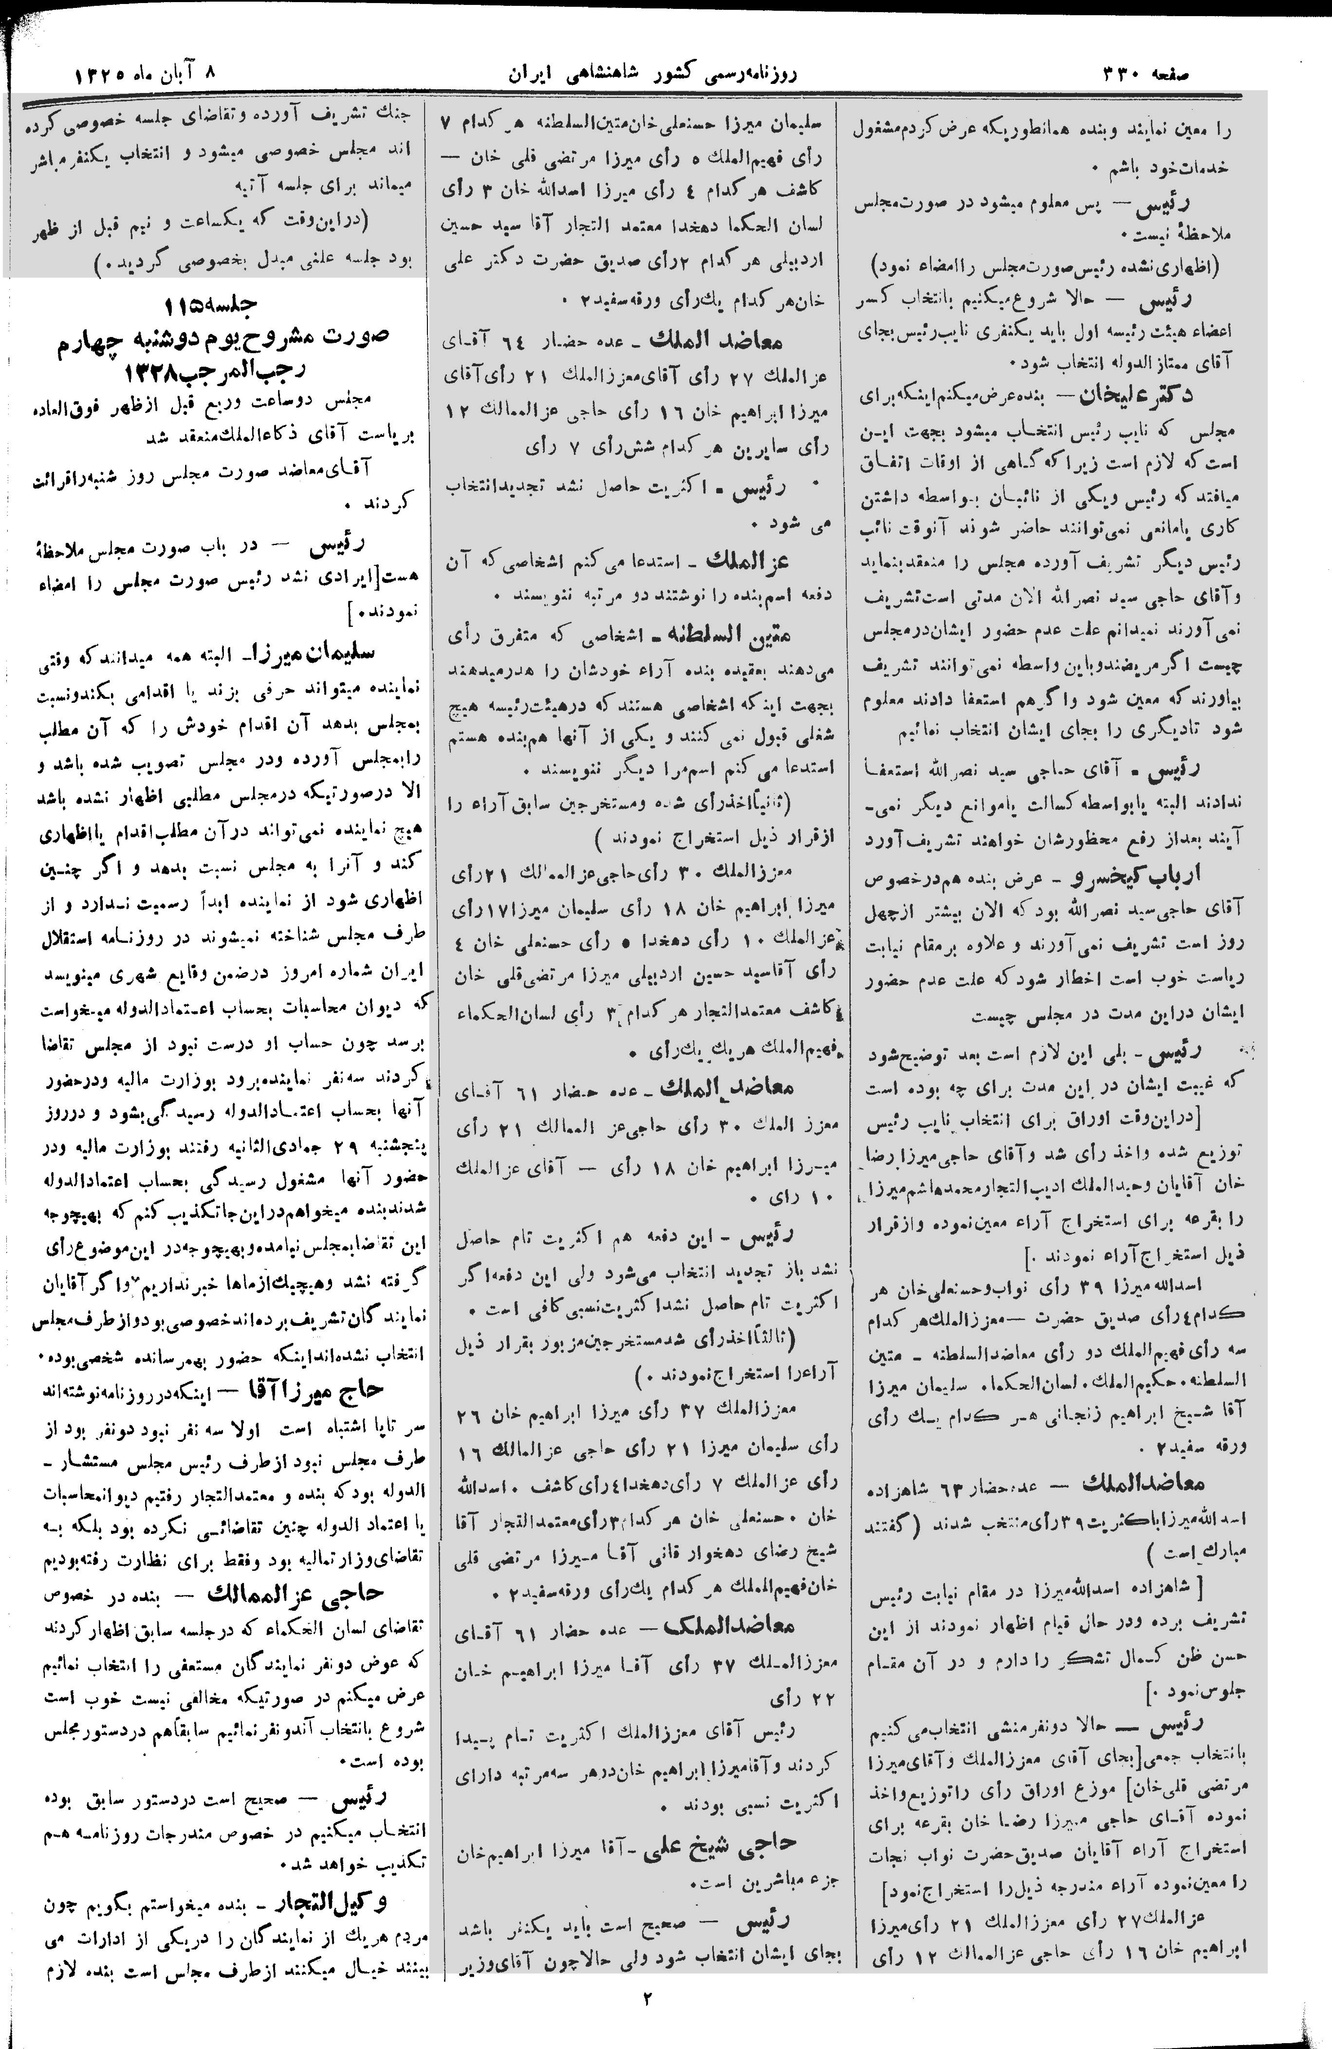 صفحه ۳۳۰
روزنامه رسمی کشور شاهنشاهی ایران
۸ آبان ماه ۱۳۲۵
را معین نمایند وبنده همانطوریکه عرض کردم مشغول
خدمات خود باشم .
رئیس — پس معلوم میشود در صورت مجلس
ملاحظهٔ نیست.
(اظهاری نشده رئیس صورت مجلس را امضاء نمود)
رئیس — حالا شروع میکنیم بانتخاب کسر
اعضاء هیئت رئیسه اول باید یکنفری نایب رئیس بجای
آقای ممتازالدوله انتخاب شود.
دکتر علیخان — بنده عرض میکنم اینکه برای
مجلس که نایب رئیس انتخاب میشود بجهت این
است که لازم است زیرا که گاهی از اوقات اتفاق
میافتد که رئیس ویکی از نائبان بواسطه داشتن
کاری یا مانعی نمی‌توانند حاضر شوند آنوقت نائب
رئیس دیگر تشریف آورده مجلس را منعقد بنماید
و آقای حاجی سید نصرالله الان مدتی است تشریف
نمی آورند نمیدانم علت عدم حضور ایشان در مجلس
چیست اگر مریضند و باین واسطه نمی توانند تشریف
بیاورند که معین شود واگر هم استعفا دادند معلوم
شود تا دیگری را بجای ایشان انتخاب نمائیم
رئیس - آقای حاجی سید نصرالله استعفا
ندادند البته یا بواسطه کسالت یا موانع دیگر نمی-
آیند بعد از رفع محظورشان خواهند تشریف آورد
ارباب کیخسرو - عرض بنده هم در خصوص
آقای حاجی سید نصرالله بود که الان بیشتر از چهل
روز است تشریف نمی آورند و علاوه بر مقام نیابت
ریاست خوب است اخطار شود که علت عدم حضور
ایشان در این مدت در مجلس چیست
رئیس - بلی این لازم است بعد توضیح شود
که غیبت ایشان در این مدت برای چه بوده است
[در این وقت اوراق برای انتخاب نایب رئیس
توزیع شده واخذ رأی شد و آقای حاجی میرزا رضا
خان آقایان وحیدالملک ادیب التجار محمدهاشم میرزا
را بقرعه برای استخراج آراء معین نموده واز قرار
ذیل استخراج آراء نمودند .]
اسدالله میرزا ۳۹ رأی نواب و حسنعلی خان هر
کدام ٤ رأی صدیق حضرت — معززالملك هر کدام
سه رأی فهیم الملک دو رأی معاضدالسلطنه - متین
السلطنه . حکیم الملک . لسان الحکما . سلیمان میرزا
آقا شیخ ابراهیم زنجانی هر کدام یك رأی
ورقه سفید ۲ .
معاضدالملك — عده حضار ۶۳ شاهزاده
اسدالله میرزا باکثریت ۳۹ رأی منتخب شدند (گفتند
مبارك است )
[ شاهزاده اسدالله میرزا در مقام نیابت رئیس
تشریف برده ودر حال قیام اظهار نمودند از این
حسن ظن کمال تشکر را دارم و در آن مقام
جلوس نمود .]
رئیس — حالا دو نفر منشی انتخاب می کنیم
بانتخاب جمعی [بجای آقای معززالملک و آقای میرزا
مرتضی قلی خان] موزع اوراق رأی را توزیع و اخذ
نموده آقای حاجی میرزا رضا خان بقرعه برای
استخراج آراء آقایان صدیق حضرت نواب نجات
را معین نموده آراء مندرجه ذیل را استخراج نمود]
عزالملك ۲۷ رأی معززالملك ۲۱ رأی میرزا
ابراهیم خان ۱۶ رأی حاجی عزالممالك ۱۲ رأی
سلیمان میرزا حسنعلی خان متین السلطنه هر کدام ۷
رأی فهیم الملك ۵ رأی میرزا مرتضی قلی خان —
کاشف هر کدام ٤ رأی میرزا اسدالله خان ۳ رأی
لسان الحکما دهخدا معتمد التجار آقا سید حسین
اردبیلی هر کدام ۲ رأی صدیق حضرت دکتر علی
خان هر کدام یك رأی ورقه سفید ۲ .
معاضد الملك - عده حضار ٦٤ آقای
عزالملك ۲۷ رأی آقای معززالملك ۲۱ رأی آقای
میرزا ابراهیم خان ۱۶ رأی حاجی عزالممالك ۱۲
رأی سایرین هر کدام شش رأی ۷ رأی
رئیس - اکثریت حاصل نشد تجدید انتخاب
می شود .
عزالملك - استدعا می کنم اشخاصی که آن
دفعه اسم بنده را نوشتند دو مرتبه ننویسند .
متین السلطنه - اشخاصی که متفرق رأی
می دهند بعقیده بنده آراء خودشان را هدر میدهند
بجهت اینکه اشخاصی هستند که در هیئت رئیسه هیچ
شغلی قبول نمی کنند و یکی از آنها هم بنده هستم
استدعا می کنم اسم مرا دیگر ننویسند .
(ثانیاً اخذ رأی شده ومستخرجین سابق آراء را
از قرار ذیل استخراج نمودند )
معززالملك ۳۰ رأی حاجی عزالممالك ۲۱ رأی
میرزا ابراهیم خان ۱۸ رأی سلیمان میرزا ۱۷ رأی
عزالملك ۱۰ رأی دهخدا ۵ رأی حسنعلی خان ٤
رأی آقا سید حسین اردبیلی میرزا مرتضی قلی خان
کاشف معتمدالتجار هر کدام ۳ رأی لسان الحکماء
فهیم الملك هر یك یك رأی .
معاضد الملك - عده حضار ۶۱ آقای
معزز الملك ۳۰ رأی حاجی عز الممالك ۲۱ رأی
میرزا ابراهیم خان ۱۸ رأی — آقای عزالملك
۱۰ رای .
رئیس - این دفعه هم اکثریت تام حاصل
نشد باز تجدید انتخاب می شود ولی این دفعه اگر
اکثریت تام حاصل نشد اکثریت نسبی کافی است .
(ثالثاً اخذ رأی شد مستخرجین مزبور بقرار ذیل
آراء را استخراج نمودند .)
معززالملك ۳۷ رأی میرزا ابراهیم خان ۲۶
رأی سلیمان میرزا ۲۱ رأی حاجی عزالمالك ۱۶
رأی عزالملك ۷ رأی دهخدا ٤ رأی کاشف . اسدالله
خان . حسنعلی خان هر کدام ۳ رأی معتمدالتجار آقا
شیخ رضای دهخوار قانی آقا میرزا مرتضی قلی
خان فهیم الملك هر کدام یك رأی ورقه سفید ۲ .
معاضدالملک — عده حضار ۶۱ آقای
معززالملك ۳۷ رأی آقا میرزا ابراهیم خان
۲۲ رأی
رئیس آقای معززالملك اکثریت تام پیدا
کردند و آقا میرزا ابراهیم خان در هر سه مرتبه دارای
اکثریت نسبی بودند .
حاجی شیخ علی - آقا میرزا ابراهیم خان
جزء مباشرین است.
رئیس — صحیح است باید یکنفر باشد
بجای ایشان انتخاب شود ولی حالا چون آقای وزیر
جنك تشریف آورده وتقاضای جلسه خصوصی کرده
اند مجلس خصوصی میشود و انتخاب یکنفر مباشر
میماند برای جلسه آتیه
(در این وقت که یکساعت و نیم قبل از ظهر
بود جلسه علنی مبدل بخصوصی گردید .)
جلسه ۱۱۵
صورت مشروح یوم دوشنبه چهارم
رجب المرجب ۱۳۲۸
مجلس دو ساعت وربع قبل از ظهر فوق العاده
بریاست آقای ذکاءالملك منعقد شد
آقای معاضد صورت مجلس روز شنبه را قرائت
کردند .
رئیس — در باب صورت مجلس ملاحظهٔ
هست [ایرادی نشد رئیس صورت مجلس را امضاء
نمودند.]
سلیمان میرزا - البته همه میدانند که وقتی
نماینده میتواند حرفی بزند یا اقدامی بکند و نسبت
بمجلس بدهد آن اقدام خودش را که آن مطلب
را بمجلس آورده ودر مجلس تصویب شده باشد و
الا در صورتیکه در مجلس مطلبی اظهار نشده باشد
هیچ نماینده نمی تواند در آن مطلب اقدام یا اظهاری
کند و آنرا به مجلس نسبت بدهد و اگر چنین
اظهاری شود از نماینده ابداً رسمیت ندارد و از
طرف مجلس شناخته نمیشوند در روزنامه استقلال
ایران شماره امروز در ضمن وقایع شهری مینویسد
که دیوان محاسبات بحساب اعتمادالدوله میخواست
برسد چون حساب او درست نبود از مجلس تقاضا
کردند سه نفر نماینده برود بوزارت مالیه ودر حضور
آنها بحساب اعتمادالدوله رسیدگی بشود و در روز
پنجشنبه ۲۹ جمادی الثانیه رفتند بوزارت مالیه ودر
حضور آنها مشغول رسیدگی بحساب اعتمادالدوله
شدند بنده میخواهم در این جا تکذیب کنم که بهیچوجه
این تقاضا بمجلس نیامده و بهیچوجه در این موضوع رأی
گرفته نشد وهیچیك از ماها خبر نداریم واگر آقایان
نمایندگان تشریف برده اند خصوصی بود و از طرف مجلس
انتخاب نشده اند اینکه حضور بهم رسانده شخصی بوده.
حاج میرزا آقا — اینکه در روزنامه نوشته اند
سر تا پا اشتباه است اولا سه نفر نبود دو نفر بود از
طرف مجلس نبود از طرف رئیس مجلس مستشار -
الدوله بود که بنده و معتمدالتجار رفتیم دیوانمحاسبات
یا اعتماد الدوله چنین تقاضائی نکرده بود بلکه به
تقاضای وزارتمالیه بود وفقط برای نظارت رفته بودیم
حاجی عزالممالك — بنده در خصوص
تقاضای لسان الحکماء که در جلسه سابق اظهار کردند
که عوض دو نفر نمایندگان مستعفی را انتخاب نمائیم
عرض میکنم در صورتیکه مخالفی نیست خوب است
شروع بانتخاب آندو نفر نمائیم سابقاً هم در دستور مجلس
بوده است.
رئیس — صحیح است در دستور سابق بوده
انتخاب میکنیم در خصوص مندرجات روزنامه هم
تکذیب خواهد شد.
وکیل التجار - بنده میخواستم بگویم چون
مردم هر یك از نمایندگان را در یکی از ادارات می
بینند خیال میکنند از طرف مجلس است بنده لازم
۲